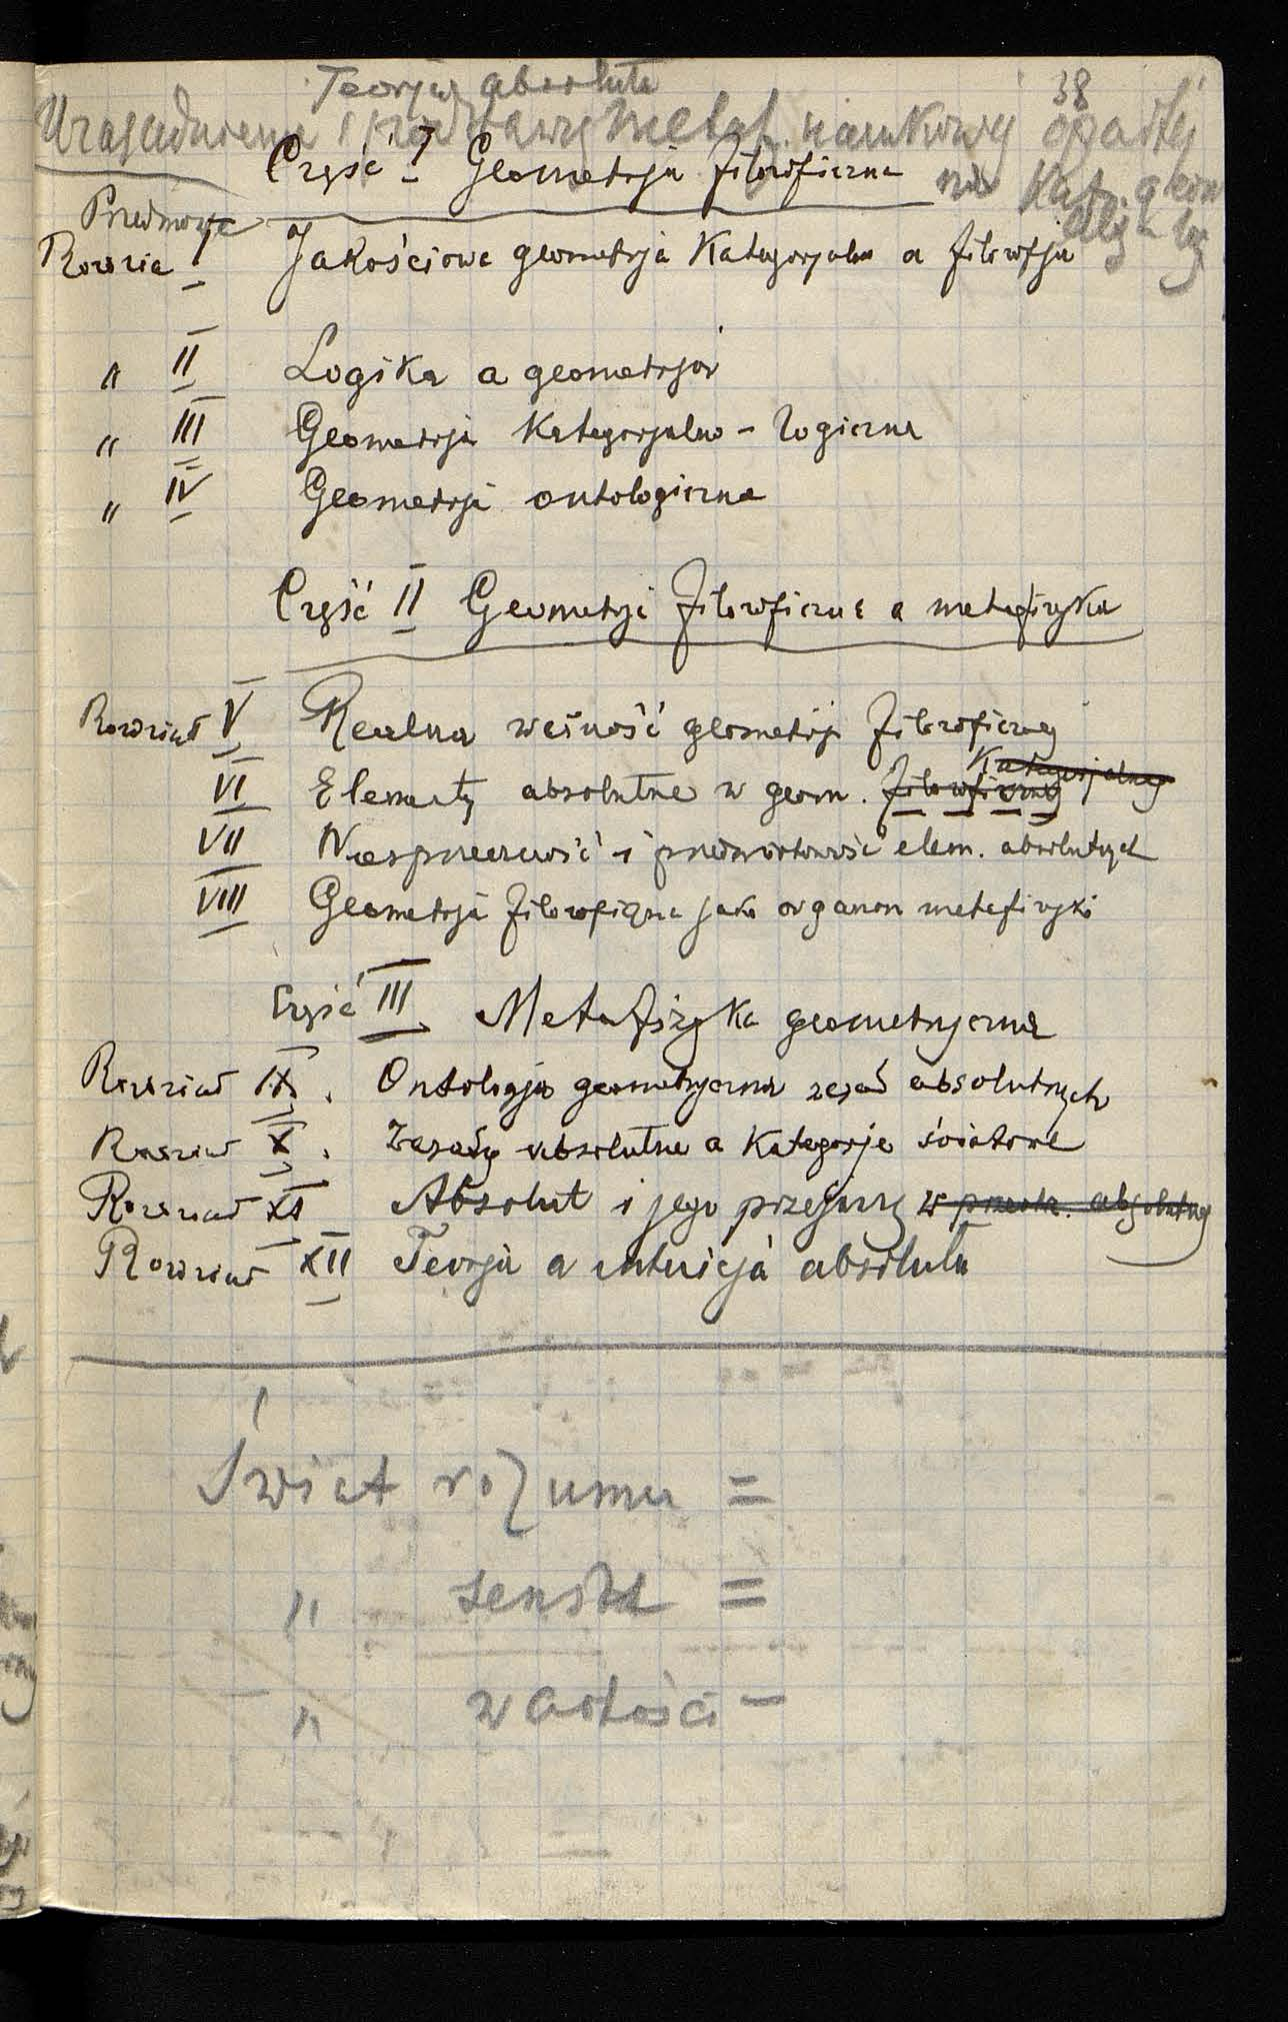 Teorja absolutu
38
Uzasadnienie i podstawy metaf. naukowej opartej
Część I Geometrja filozoficzna na kat. geom
Przedmowa
Rozdział I Jakościowa geometrja kategorjalna a filozofja
" II Logika a geometrja
" III Geometrja kategorjalno-logiczna
" IV Geometrja ontologiczna
Część II Geometrja filozoficzna a metafizyka
Rozdział V Realna ważność geometrji filozoficznej
kategorjalnej
VI Elementy absolutne w geom. filozoficznej
VII Niesprzeczność i przedmiotowość elem. absolutnych
VIII Geometrja filozoficzna jako organon metafizyki
Część III Metafizyka geometryczna
Rozdział IX. Ontologja geometryczna zasad absolutnych
Rozdział X. Zasady absolutne a kategorje światowe
Rozdział XI Absolut i jego przejawy w przestr. absolutnej
Rozdział XII Teorja a intuicja absolutu
Świat rozumu =
" zmysłu =
" wartości –